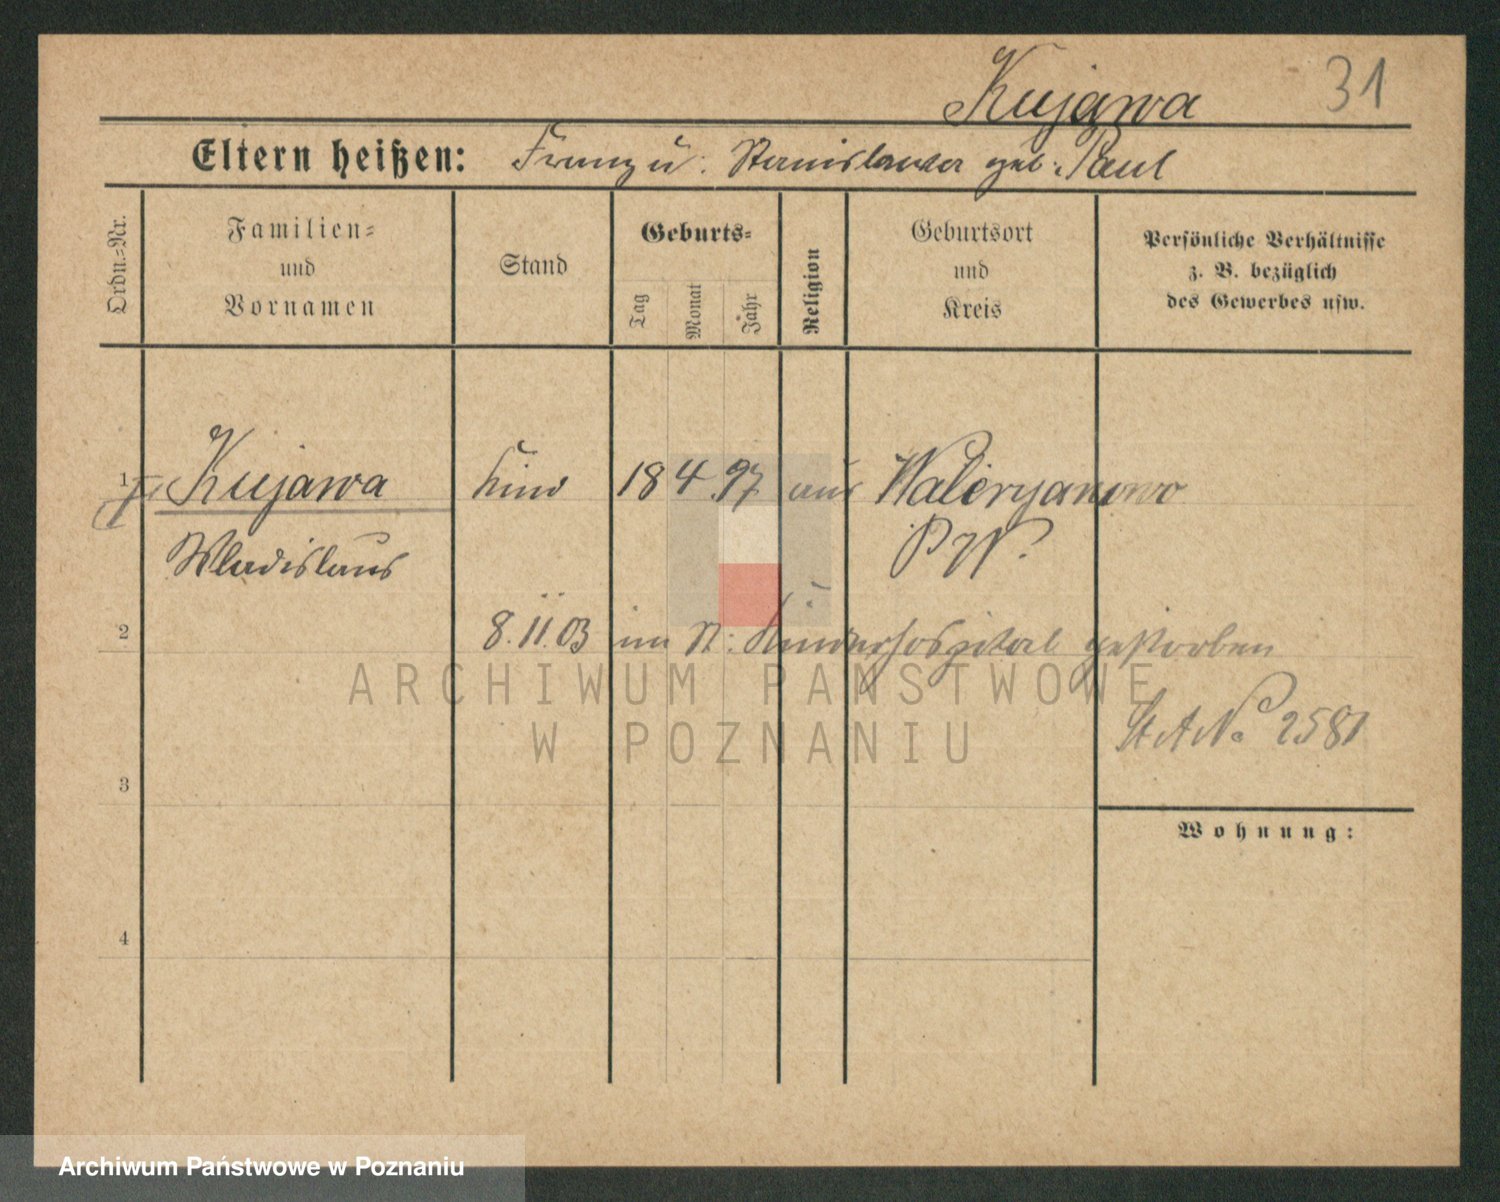 Kujawa 31
Eltern heißen: Franz u. Stanislawa geb. Paul
Ordn.-Nr.
Familien-
und
Vornamen
Stand
Geburts-
Tag
Monat
Jahr
Religion
Geburtsort
und
Kreis
Persönliche Verhältnisse
z. B. bezüglich
des Gewerbes usw.
1 Kujawa Kind 18 4. 97 aus Waleryanowo
Wladislaus
P. W.
2 8. 11. 03 im St: Kinderhospital gestorben
ARCHIWUM PAŃSTWOWE
W POZNANIU
St A No 2581
3
Wohnung:
4
Archiwum Państwowe w Poznaniu